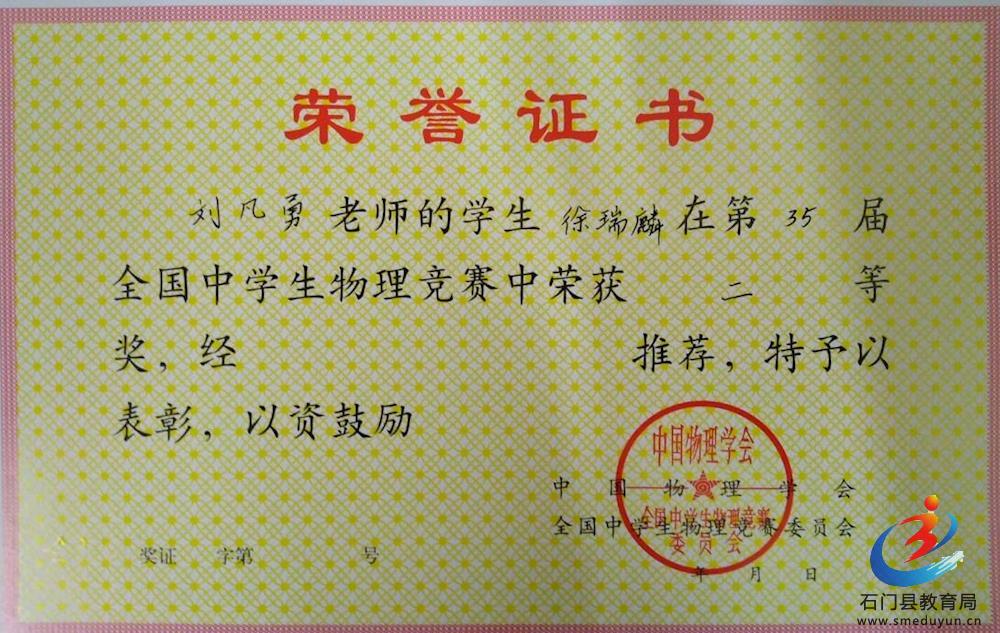 荣誉证书
刘凡勇老师的学生徐瑞麟在第35届
全国中学生物理竞赛中荣获二等
奖，经 推荐，特予以
表彰，以资鼓励
中国物理学会
全国中学生物理竞赛
委员会
中国物理学会
全国中学生物理竞赛委员会
年 月 日
奖证 字第 号
石门县教育局
www.smeduyun.cn